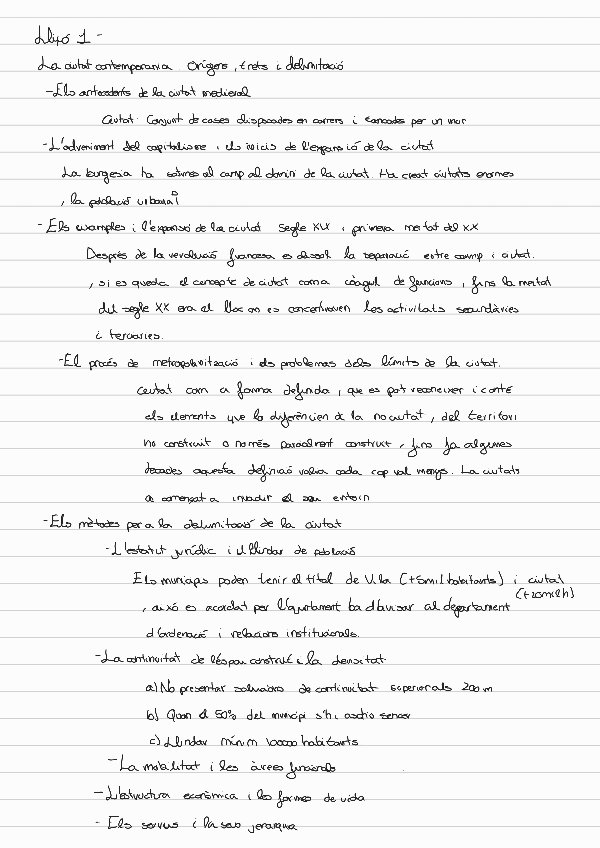 Lliçó 1 -
La ciutat contemporania Orígens, trets i delimitació
- Els antecedents de la ciutat medieval
Ciutat: Conjunt de cases disposades en carrers i tancades per un mur
- L'adveniment del capitalisme i els inicis de l'expansió de la ciutat
La burgesia ha sotmes al camp al domini de la ciutat. Ha creat ciutats enormes
, la població urbana
- Els eixamples i l'expansió de la ciutat segle XIX i primera meitat del XX
Després de la revolució francesa es dissol la separació entre camp i ciutat.
, si es queda el concepte de ciutat com a coàgul de funcions, fins la meitat
del segle XX era el lloc on es concentraven les activitats secundàries
i terciaries.
- El procés de metropolinització i els problemes dels límits de la ciutat.
Ciutat com a forma definida, que es pot reconeixer i conté
els elements que la diferèncien de la no ciutat, del territori
no construit o només parcialment construit, fins fa algunes
decades aquesta definició valia cada cop val menys. La ciutats
a començat a invadir el seu entorn
- Els mètodes per a la delimitació de la ciutat
- L'estatut jurídic i el llindar de població
Els municips poden tenir el títol de Vila (+5mil habitants) i ciutat
(+20mil h)
, això es acordat per l'ajuntament ha d'avisar al departament
d'ordenació i relacions institucionals.
- La continuïtat de l'espai construit i la densitat
a) No presentar solucions de continuitat superior als 200 m
b) Quan el 50% del municipi s'hi
c) Llindar mínim 10000 habitants
- La mobilitat i les àrees funcionals
- L'estructura econòmica i les formes de vida
- Els serveis i la seva jerarquia